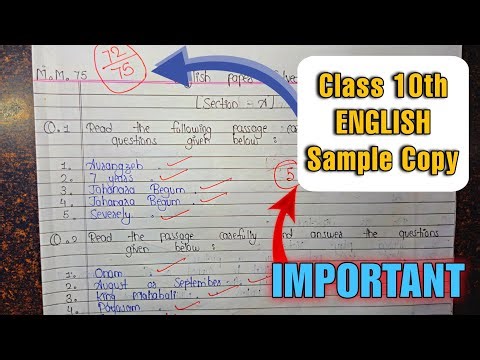 M.M. 75
72/75
English paper
[Section - A]
Class 10th
ENGLISH
Sample Copy
Q.1 Read the following passage
questions given below :
1. Aurangzeb
2. 7 years
3. Jahanara Begum
4. Jahanara Begum
5. Severely
5
Q.2 Read the passage carefully and answer the questions
given below :
1. Onam
2. August or September
3. King Mahabali
4. Payasam
IMPORTANT